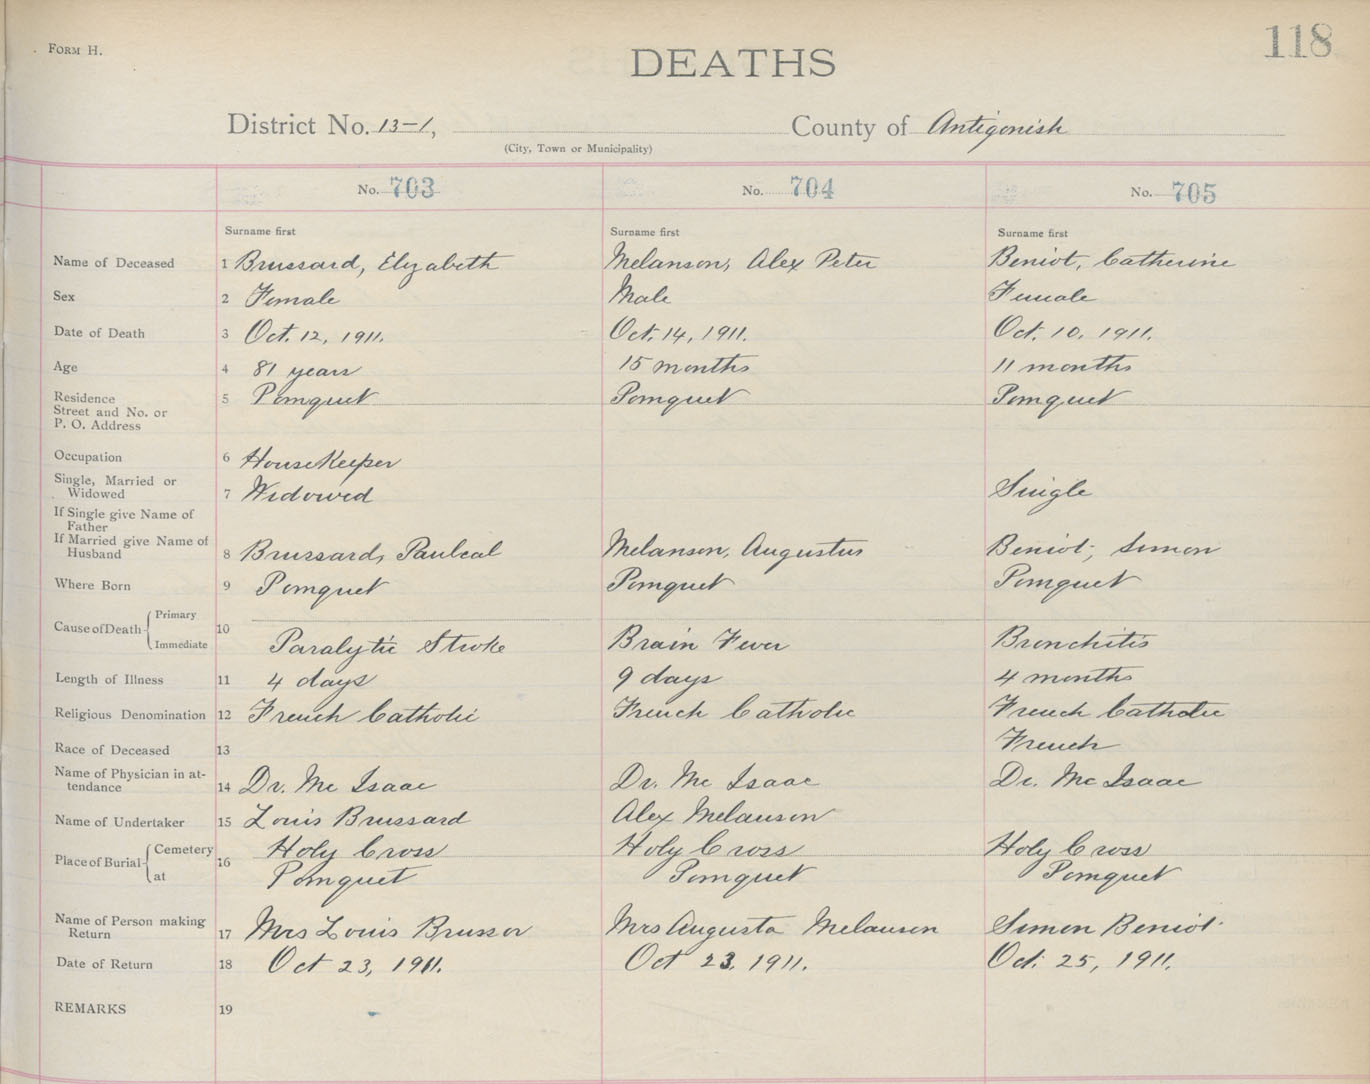 FORM H.
118
DEATHS
District No. 13-1, County of Antigonish
(City, Town or Municipality)
No. 703 No. 704 No. 705
Surname first Surname first Surname first
Name of Deceased 1 Brussard, Elizabeth Melanson, Alex Peter Beniot, Catherine
Sex 2 Female Male Female
Date of Death 3 Oct. 12, 1911. Oct. 14, 1911. Oct. 10, 1911.
Age 4 81 years 15 months 11 months
Residence 5 Pomquet Pomquet Pomquet
Street and No. or
P. O. Address
Occupation 6 HouseKeeper
Single, Married or
Widowed 7 Widowed Single
If Single give Name of
Father
If Married give Name of
Husband 8 Brussard, Melanson, Augustus Beniot, Simon
Where Born 9 Pomquet Pomquet Pomquet
Cause of Death 10 Primary
Immediate Paralytic Stroke Brain Fever Bronchitis
Length of Illness 11 4 days 9 days 4 months
Religious Denomination 12 French Catholic French Catholic French Catholic
Race of Deceased 13 French
Name of Physician in at-
tendance 14 Dr. Mc Isaac Dr. Mc Isaac Dr. Mc Isaac
Name of Undertaker 15 Louis Brussard Alex Melanson
Place of Burial 16 Cemetery Holy Cross Holy Cross Holy Cross
at Pomquet Pomquet Pomquet
Name of Person making
Return 17 Mrs Louis Brussor Mrs Augusta Melanson Simon Beniot
Date of Return 18 Oct 23, 1911. Oct 23, 1911. Oct. 25, 1911.
REMARKS 19